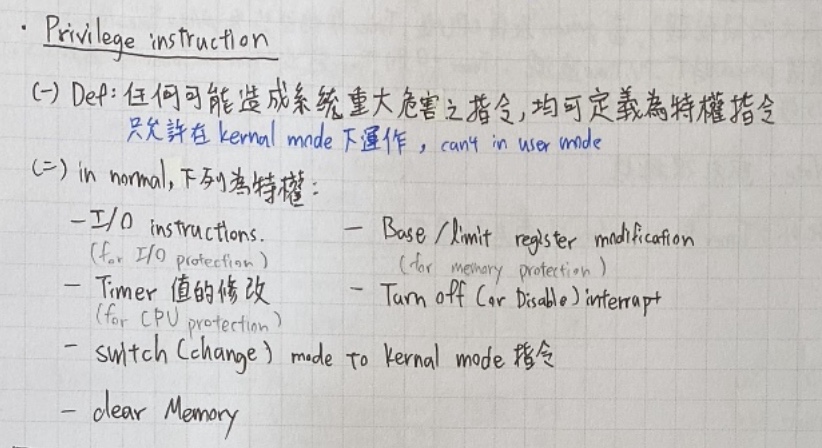 · Privilege instruction
(一) Def: 任何可能造成系統重大危害之指令,均可定義為特權指令
只允許在 kernal mode 下運作, can't in user mode
(二) in normal, 下列為特權:
- I/O instructions.
(for I/O protection)
- Base/limit register modification
(for memory protection)
- Timer 值的修改
(for CPU protection)
- Turn off (or Disable) interrapt
- switch (change) mode to kernal mode 指令
- clear Memory